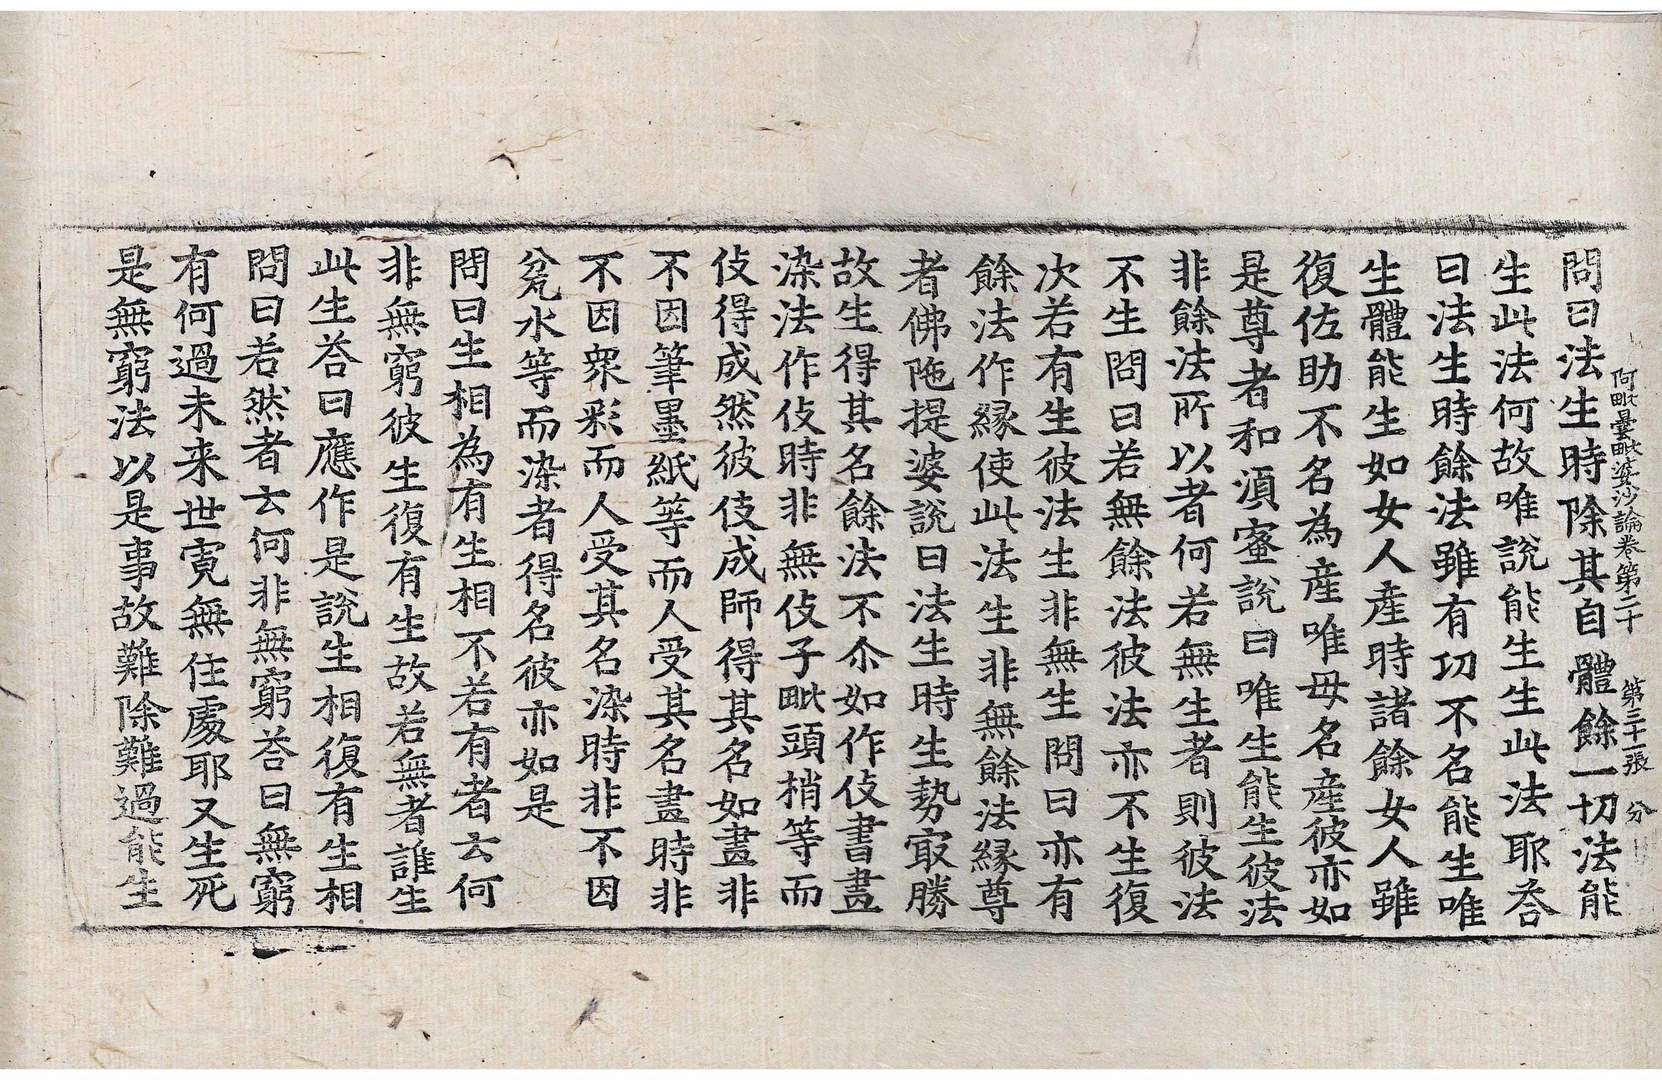 阿毗曇毗婆沙論卷第二十　第三十一張　分
問曰法生時除其自體餘一切法能
生此法何故唯說能生生此法耶荅
曰法生時餘法雖有功不名能生唯
生體能生如女人產時諸餘女人雖
復佐助不名為產唯母名產彼亦如
是尊者和須蜜說曰唯生能生彼法
非餘法所以者何若無生者則彼法
不生問曰若無餘法彼法亦不生復
次若有生彼法生非無生問曰亦有
餘法作緣使此法生非無餘法緣尊
者佛陁提婆說曰法生時生勢㝡勝
故生得其名餘法不尒如作伎書畫
染法作伎時非無伎子毗頭梢等而
伎得成然彼伎成師得其名如畫非
不因筆墨紙等而人受其名畫時非
不因衆彩而人受其名染時非不因
瓫水等而染者得名彼亦如是
問曰生相為有生相不若有者云何
非無窮彼生復有生故若無者誰生
此生荅曰應作是說生相復有生相
問曰若然者云何非無窮荅曰無窮
有何過未来世寬無住處耶又生死
是無窮法以是事故難除難過能生